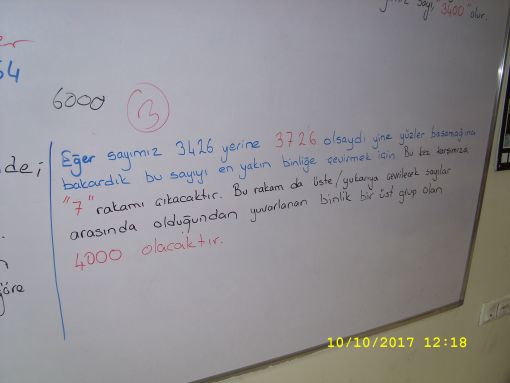 sayı, "3400" olur.
54
6000
3
de;
Eğer sayımız 3426 yerine 3726 olsaydı yine yüzler basamağına
bakardık bu sayıyı en yakın binliğe çevirmek için. Bu kez karşımıza
"7" rakamı çıkacaktır. Bu rakam da üste/yukarıya çevilecek sayılar
arasında olduğundan yuvarlanan binlik bir üst grup olan
4000 olacaktır.
göre
10/10/2017 12:18